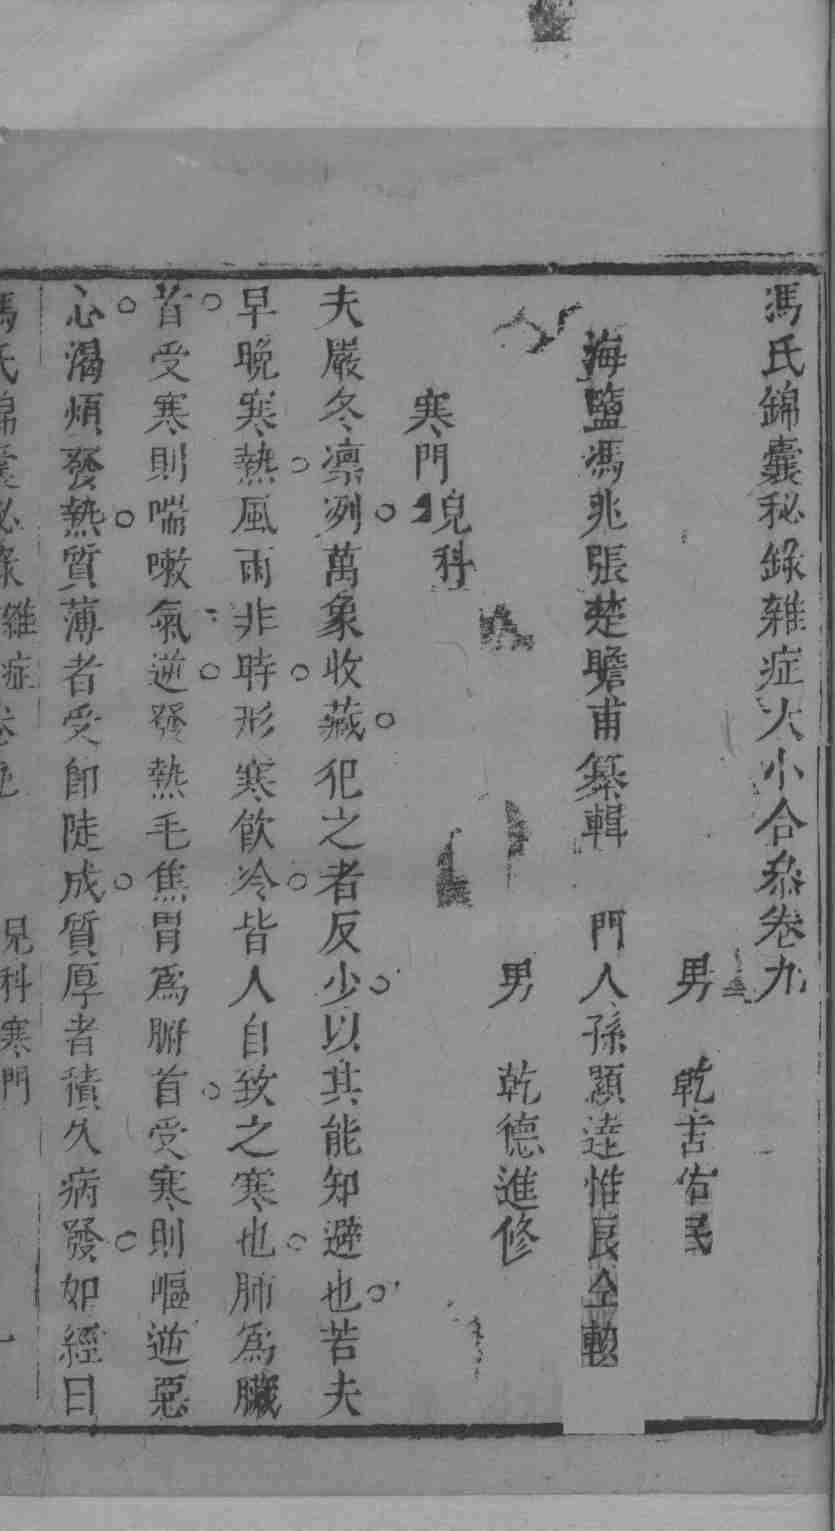 馮氏錦囊秘錄雜症大小合叅卷九
男　乾吉佑民
海鹽馮兆張楚瞻甫纂輯　門人孫顯達惟良仝較
男　乾德進修
寒門兒科
夫嚴冬凛冽萬象收藏犯之者反少以其能知避也若夫
早晚寒熱風雨非時形寒飲冷皆人自致之寒也肺爲臟
首受寒則喘嗽氣逆發熱毛焦胃爲腑首受寒則嘔逆惡
心渴煩發熱質薄者受卽陡成質厚者積久病發如經曰
馮氏錦囊秘錄雜症卷九　兒科寒門　一